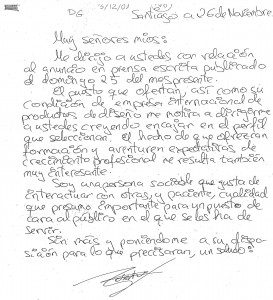 3/12/01
DG Santiago a 26 de Noviembre.
Muy señores míos:
Me dirijo a ustedes con relación
al anuncio en prensa escrita publicado
el domingo 25 del mes presente.
El puesto que ofertan, así como su
condición de empresa internacional de
productos de diseño me motiva a dirigirme
a ustedes creyendo encajar en el perfil
que seleccionan. El hecho de que ofrezcan
formación y aventuren expectativas de
crecimiento profesional me resulta también
muy interesante.
Soy una persona sociable que gusta de
interactuar con otras, y paciente, cualidad
que presumo importante para un puesto de
cara al público en el que se les ha de
servir.
Sin más y poniéndome a su dispo-
sición para lo que precisaran, un saludo: